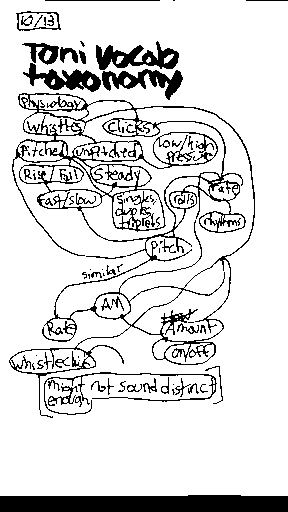 10/13
Toni Vocab
taxonomy
Physiology
Whistles
Clicks
Pitched
unpitched
low/high
pressure
Rise/Fall
Steady
Fast/slow
Singles,
duples,
triplets
rolls
rate
rhythms
Pitch
similar
AM
Rate
Amount
on/off
whistleclick
might not sound distinct
enough